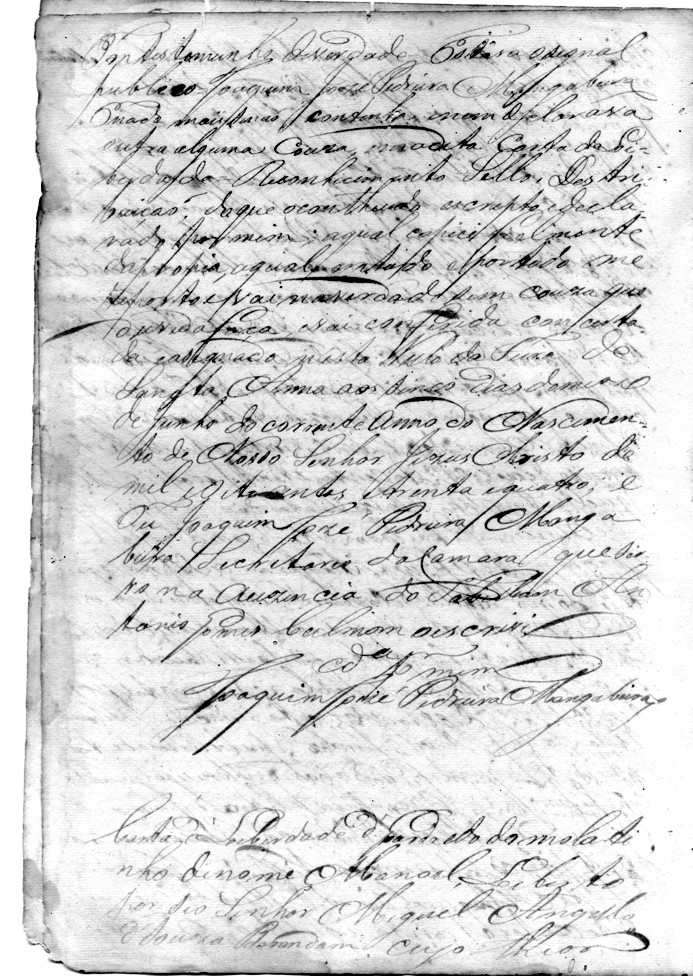 Em testemunho de verdade Estava o signal
publico Joaquim José Pedreira Mangabeira
E nada mais se continha, nem declarava
outra alguma Couza na dita Carta de Li-
berdade Reconhecimento Sello, Destri-
buiçaõ, do que o contheudo escripto e decla
rado por mim, a qual copiei fielmente
da propria, a qual
me reporto e vai na verdade sem couza que
duvida faça, e vai conferida concerta-
da e asignada nesta Villa da Feira de
Sanéta Anna aos sinco dias do mes
de Junho do corrente Anno do Nascimen-
to de Nosso Senhor Jezus Christo de
mil e oitocentos e trenta e quatro, e
Eu Joaquim José Pedreira Manga
beira Secretario da Camara que sir-
vo na auzencia do Tabeliam An
tonio Gomes Calmom o escrivi
E d por mim
Joaquim José Pedreira Mangabeira
Carta de Liberdade do molati
nho de nome Manoel, Liberto
por seo Senhor Miguel Angelo
de Souza cujo theor